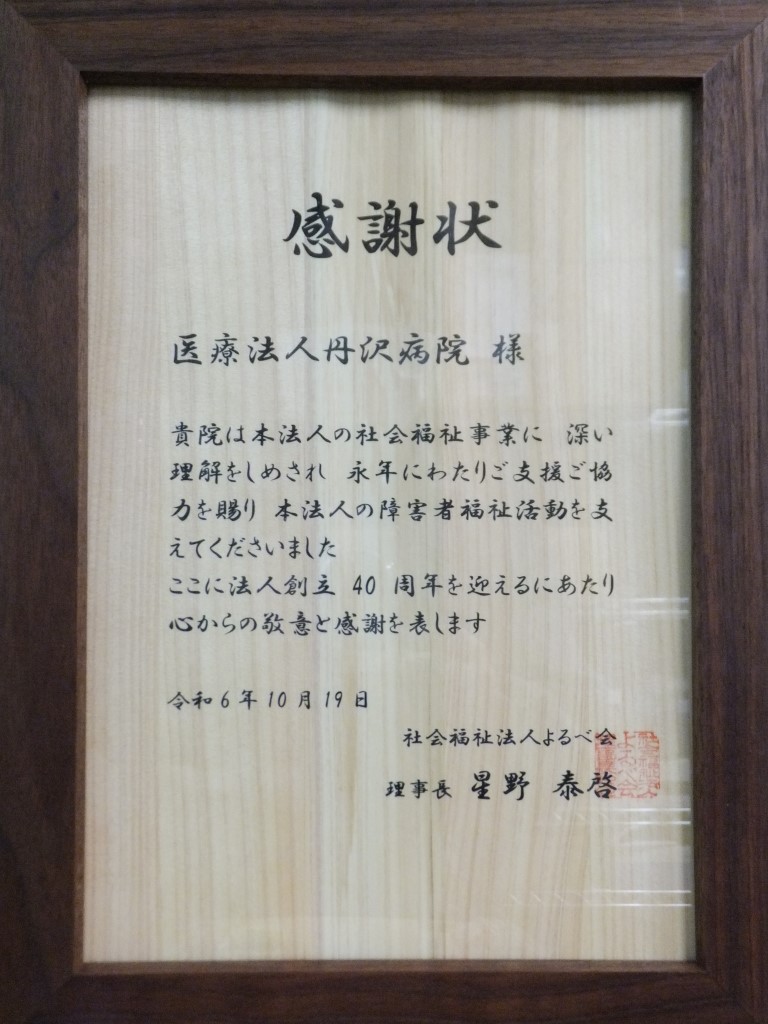 感謝状
医療法人丹沢病院 様
貴院は本法人の社会福祉事業に 深い
理解をしめされ 永年にわたりご支援ご協
力を賜り 本法人の障害者福祉活動を支
えてくださいました
ここに法人創立 40 周年を迎えるにあたり
心からの敬意と感謝を表します
令和6年10月19日
社会福祉法人よるべ会
理事長 星野 泰啓